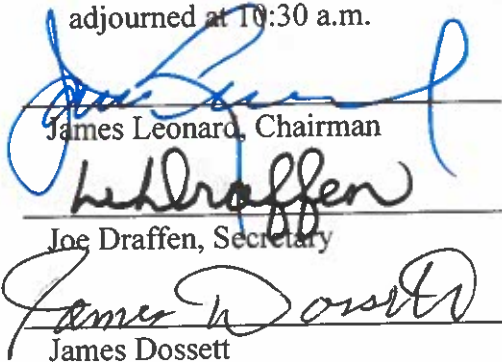 adjourned at 10:30 a.m.
James Leonard, Chairman
Draffen
Joe Draffen, Secretary
James Dossett
James Dossett